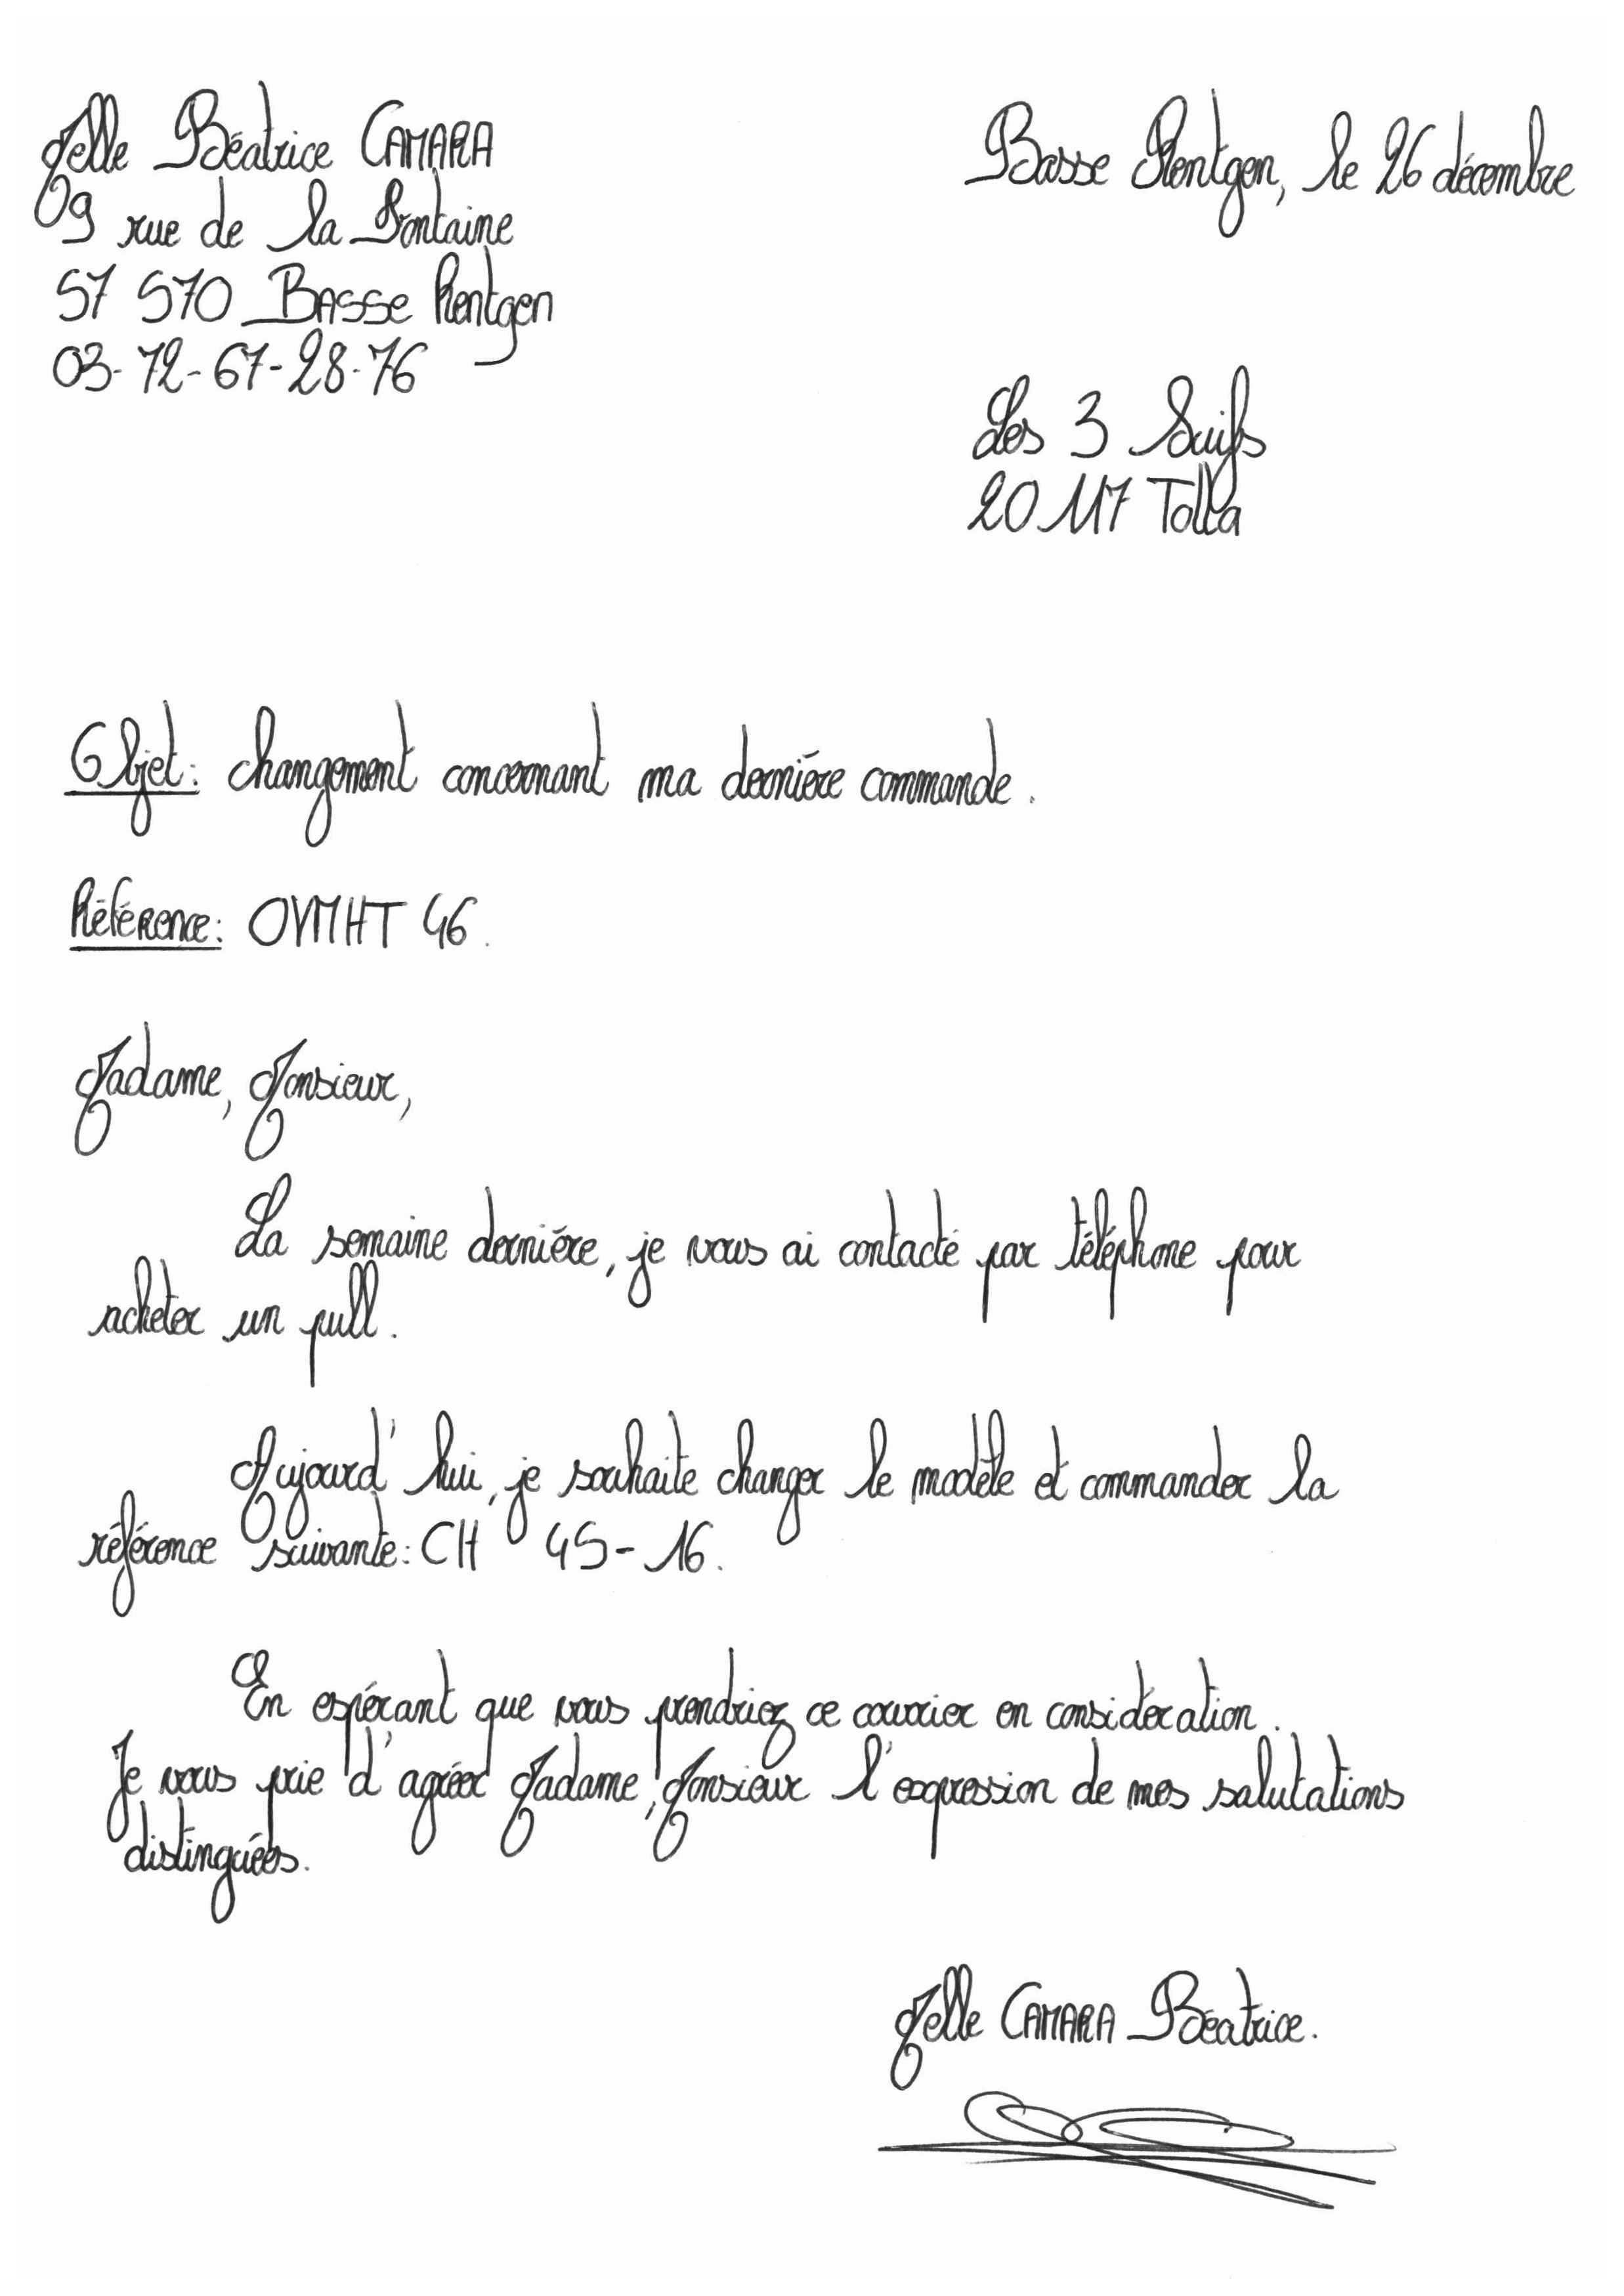 Melle Béatrice CAMARA
09 rue de la Fontaine
57 570 BASSE Rentgen
03-72-67-28-76
Basse Rentgen, le 26 décembre
Les 3 Suifs
20 117 Tolla
Objet: changement concernant ma dernière commande.
Référence: OVMHT 46.
Madame, Monsieur,
La semaine dernière, je vous ai contacté par téléphone pour
acheter un pull.
Aujourd'hui, je souhaite changer le modèle et commander la
référence suivante: CH 45-16.
En espérant que vous prendriez ce courrier en considération.
Je vous prie d'agréer Madame, Monsieur l'expression de mes salutations
distinguées.
Melle CAMARA Béatrice.